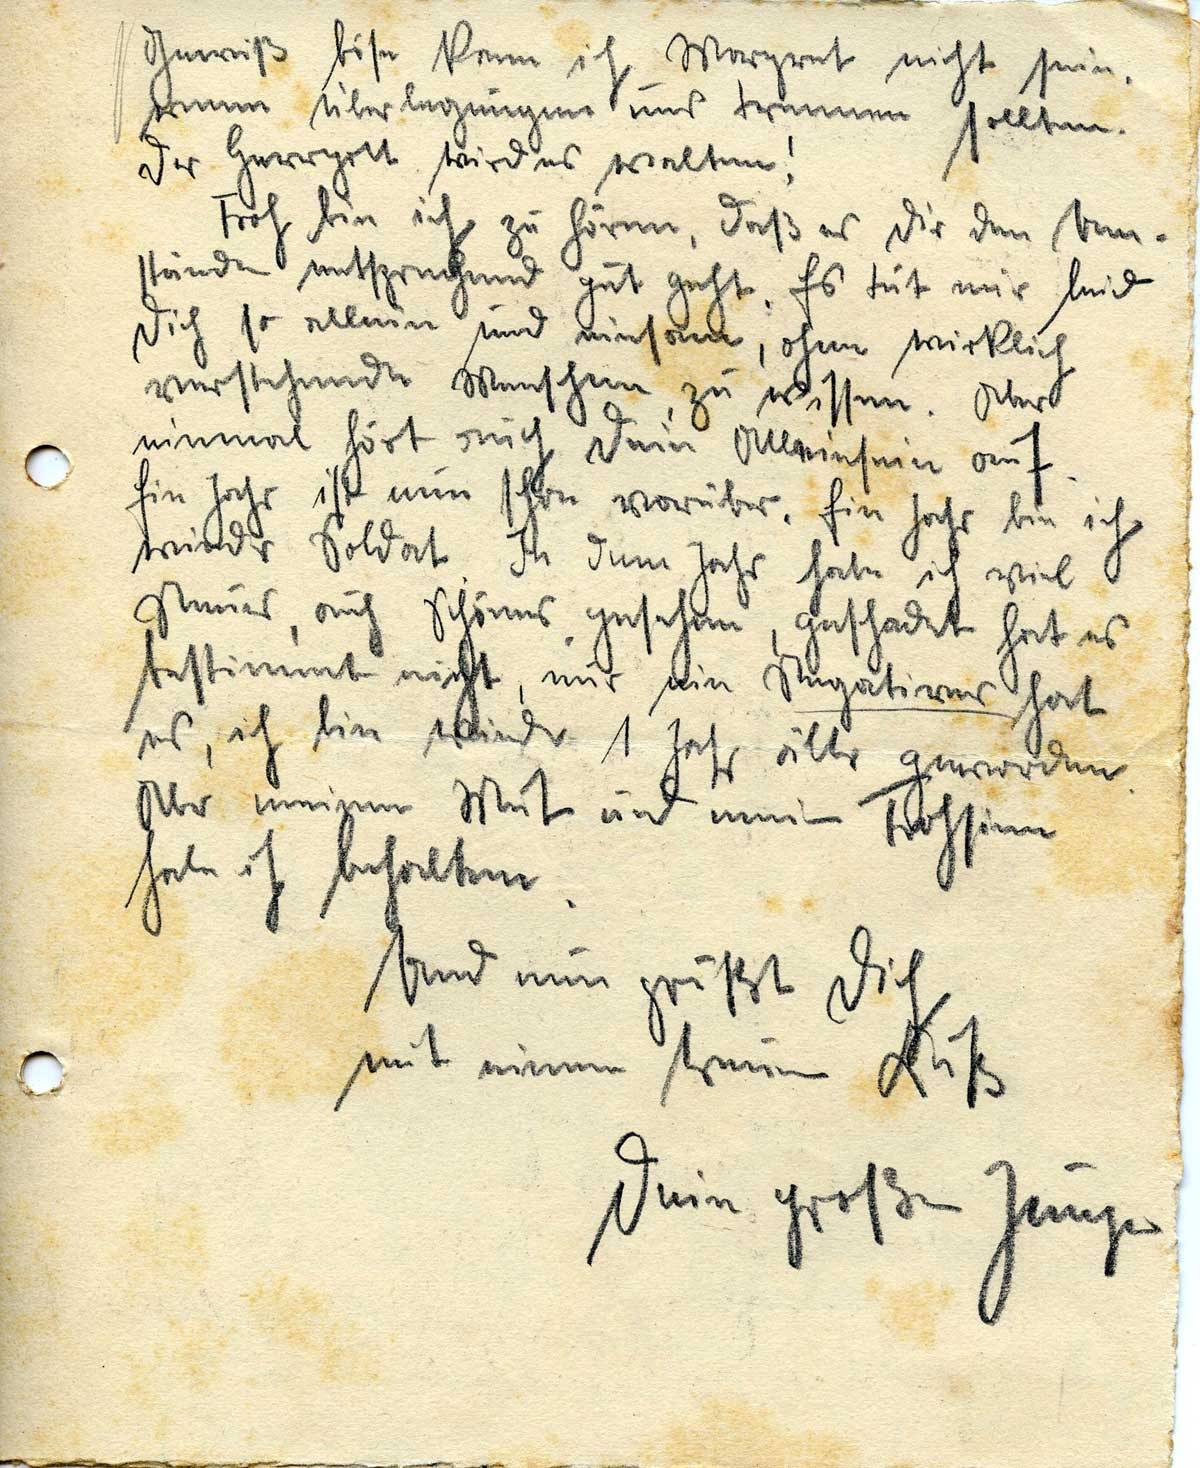 Gewiß böse kann ich Margret nicht sein,
wenn Überlegungen uns trennen sollten.
Der Herrgott wird es walten!
Froh bin ich zu hören, daß es Dir den Um-
ständen entsprechend gut geht. Es tut mir leid
Dich so allein und einsam, ohne wirklich
verstehende Menschen zu wissen. Aber
einmal hört auch Dein Alleinsein auf.
Ein Jahr ist nun schon vorüber. Ein Jahr bin ich
wieder Soldat. In dem Jahr habe ich viel
Neues, auch Schönes gesehen, geschadet hat es
bestimmt nicht, nur ein Negatives hat
es, ich bin wieder 1 Jahr älter geworden.
Aber meinen Mut und mein Frohsinn
habe ich behalten.
Und nun grüßt Dich
mit einem treuen Kuß
Dein großer Junge